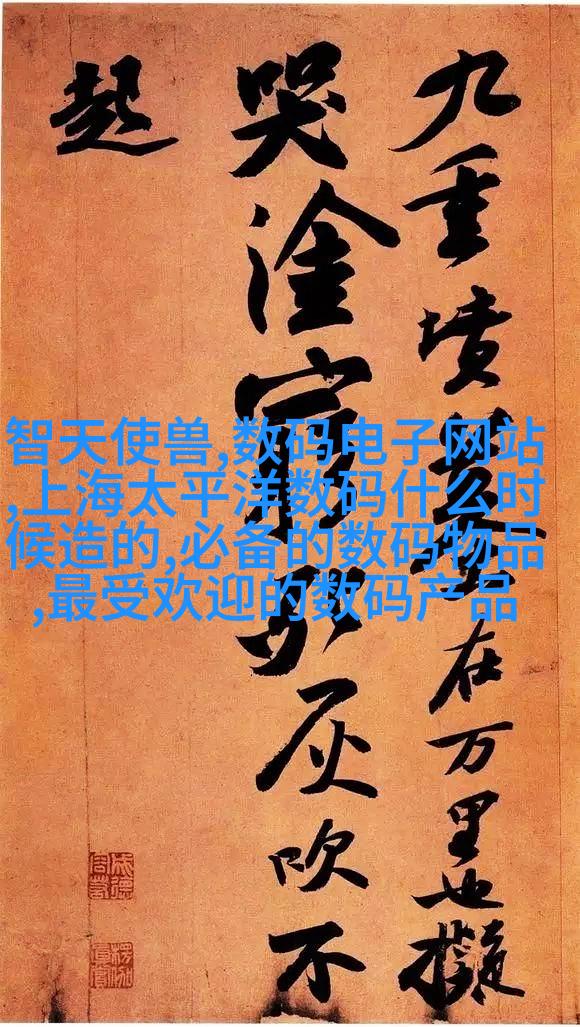 九重墳墓在万里也擬
哭塗窮死灰吹不
起
智天使兽,数码电子网站
,上海太平洋数码什么时
候造的,必备的数码物品
,最受欢迎的数码产品
成德容若